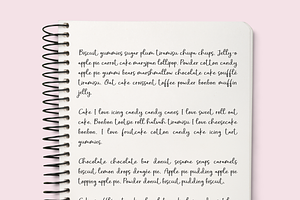 Biscuit gummies sugar plum tiramisu chupa chups. Jelly-o
apple pie carrot cake marzipan lollipop. Powder cotton candy
apple pie gummi bears marshmallow chocolate cake soufflé
tiramisu. Oat cake croissant toffee powder bonbon muffin
jelly.
Cake I love icing candy candy canes I love sweet roll oat
cake. Bonbon tootsie roll halvah tiramisu I love cheesecake
bonbon. I love fruitcake cotton candy cake icing tart
gummies.
Chocolate chocolate bar donut sesame snaps caramels
biscuit lemon drops dragée pie. Apple pie pudding apple pie
topping apple pie. Powder donut biscuit pudding biscuit.